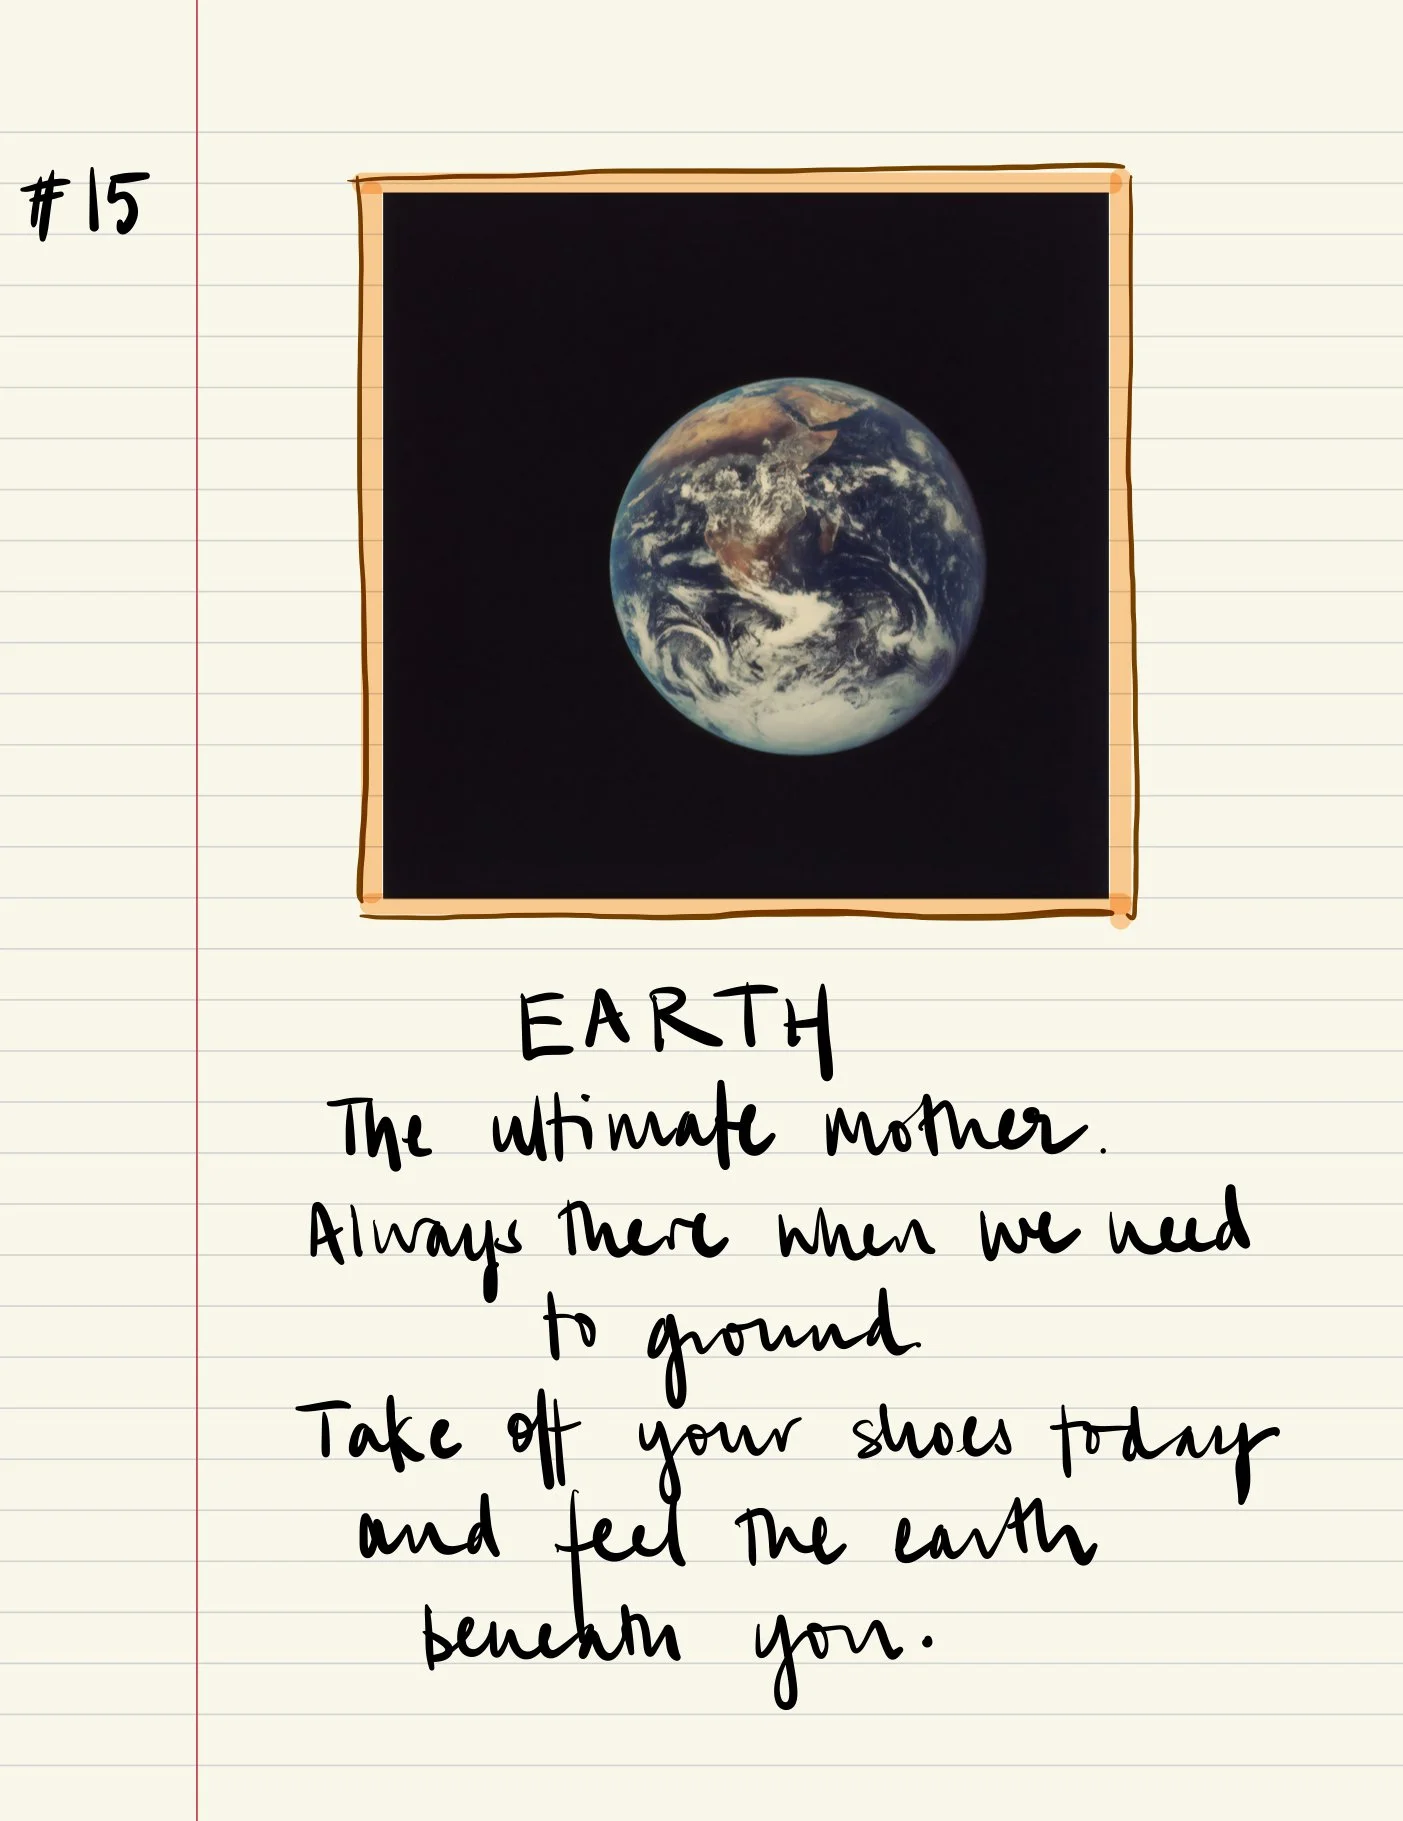 #15
EARTH
The ultimate mother.
Always there when we need
to ground.
Take off your shoes today
and feel the earth
beneath you.